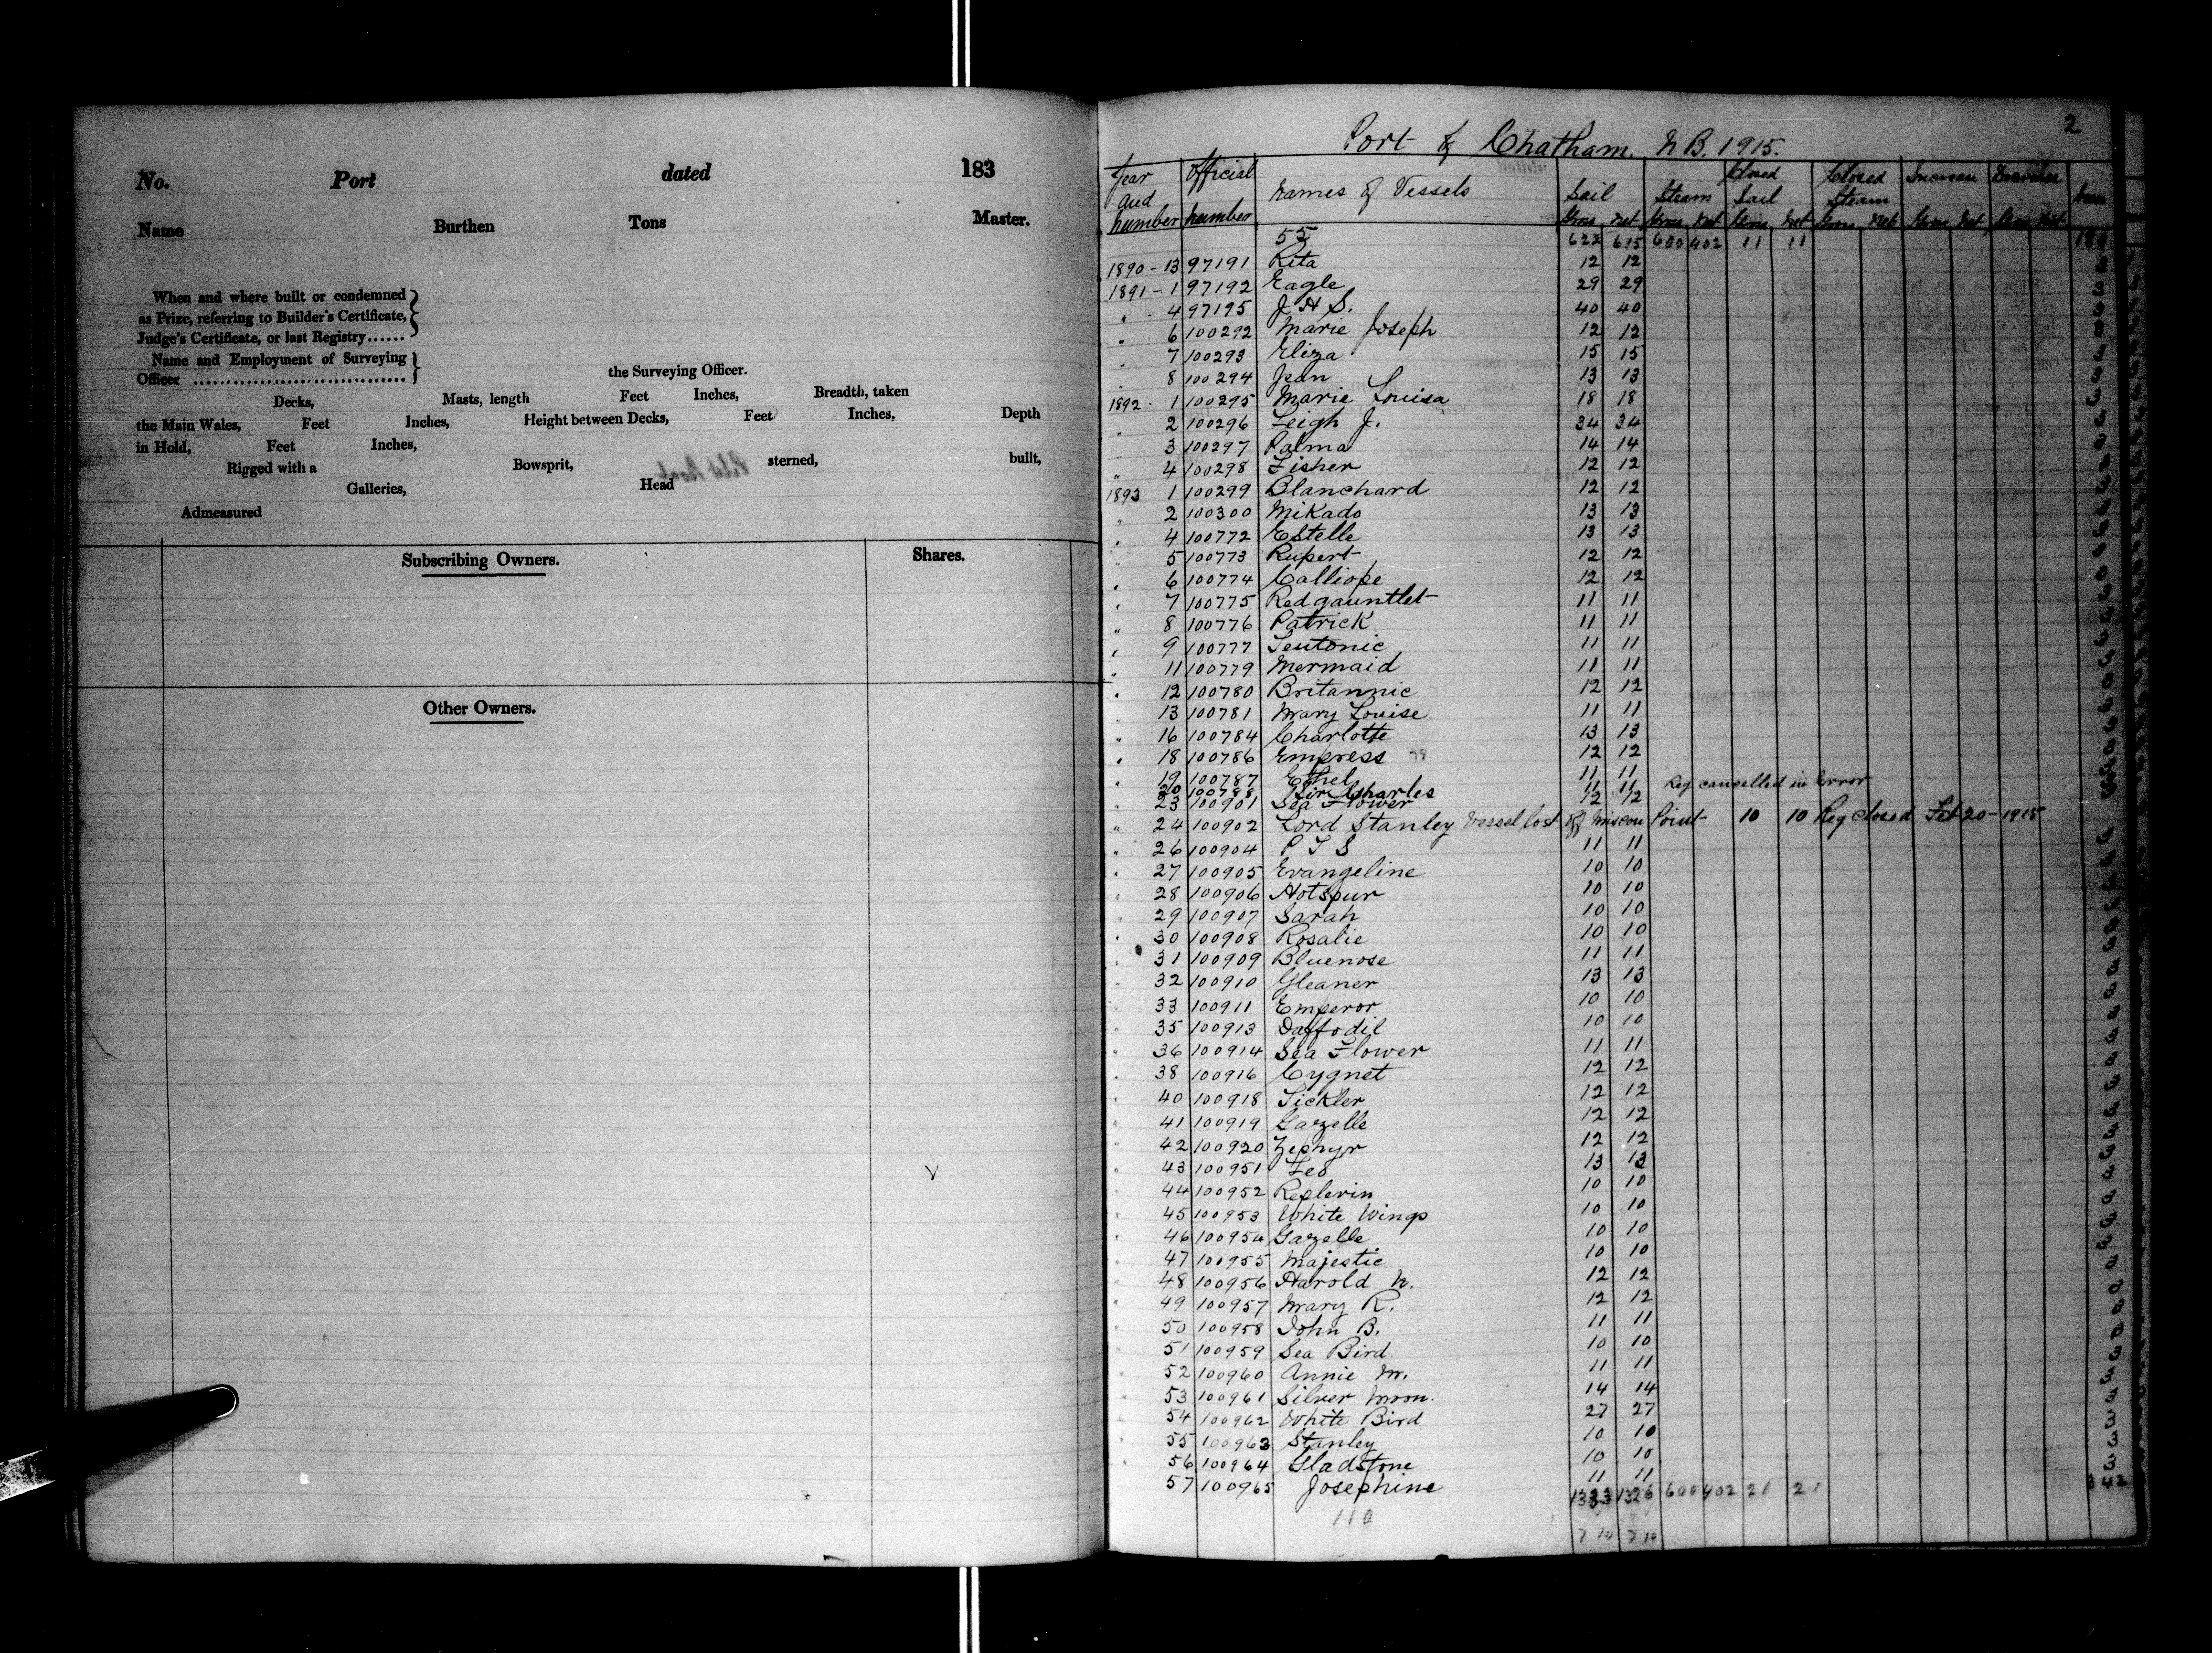 No. Port dated 183
Name Burthen Tons Master.
When and where built or condemned
as Prize, referring to Builder's Certificate,
Judge's Certificate, or last Registry......
Name and Employment of Surveying
Officer ................................ the Surveying Officer.
Decks, Masts, length Feet Inches, Breadth, taken
the Main Wales, Feet Inches, Height between Decks, Feet Inches, Depth
in Hold, Feet Inches,
Rigged with a Bowsprit, sterned, built,
Galleries, Head
Admeasured
Subscribing Owners. Shares.
Other Owners.
2
Port of Chatham. N.B. 1915.
Year and number Official number Names of Vessels Sail Steam Closed Sail Closed Steam Increase Decrease Men
Gross Net Gross Net Gross Net Gross Net Gross Net Gross Net
55 622 615 600 402 11 11
1890-13 97191 Rita 12 12
1891-1 97192 Eagle 29 29
" 4 97195 J H S. 40 40
" 6 100292 Marie Joseph 12 12
7 100293 Eliza 15 15
" 8 100294 Jean 13 13
1892-1 100295 Marie Louisa 18 18
" 2 100296 Leigh J. 34 34
3 100297 Palma 14 14
" 4 100298 Fisher 12 12
1893 1 100299 Blanchard 12 12
" 2 100300 Mikado 13 13
" 4 100772 Estelle 13 13
5 100773 Rupert 12 12
" 6 100774 Calliope 12 12
" 7 100775 Redgauntlet 11 11
" 8 100776 Patrick 11 11
" 9 100777 Teutonic 11 11
" 11 100779 Mermaid 11 11
" 12 100780 Britannic 12 12
13 100781 Mary Louise 11 11
" 16 100784 Charlotte 13 13
" 18 100786 Empress 12 12
" 19 100787 Ethel 11 11
20 100788 Sir Charles 11 11 Reg cancelled in Error
23 100901 Sea Flower 12 12
" 24 100902 Lord Stanley Vessel lost off Miscou Point 10 10 Reg closed Feb 20-1915
" 26 100904 P T S 11 11
" 27 100905 Evangeline 10 10
" 28 100906 Hotspur 10 10
" 29 100907 Sarah 10 10
" 30 100908 Rosalie 10 10
" 31 100909 Bluenose 11 11
" 32 100910 Gleaner 13 13
33 100911 Emperor 10 10
" 35 100913 Daffodil 10 10
" 36 100914 Sea Flower 11 11
" 38 100916 Cygnet 12 12
" 40 100918 Tickler 12 12
" 41 100919 Gazelle 12 12
" 42 100920 Zephyr 12 12
" 43 100951 Leo 13 13
" 44 100952 10 10
" 45 100953 White Wings 10 10
" 46 100954 Gazelle 10 10
" 47 100955 Majestic 10 10
" 48 100956 Harold N. 12 12
" 49 100957 Mary R. 12 12
" 50 100958 John B. 11 11
" 51 100959 Sea Bird 10 10
" 52 100960 Annie M. 11 11
" 53 100961 Silver Moon. 14 14
" 54 100962 White Bird 27 27
" 55 100963 Stanley 10 10
" 56 100964 Gladstone 10 10
57 100965 Josephine 11 11
1333 1326 600 402 21 21 342
110